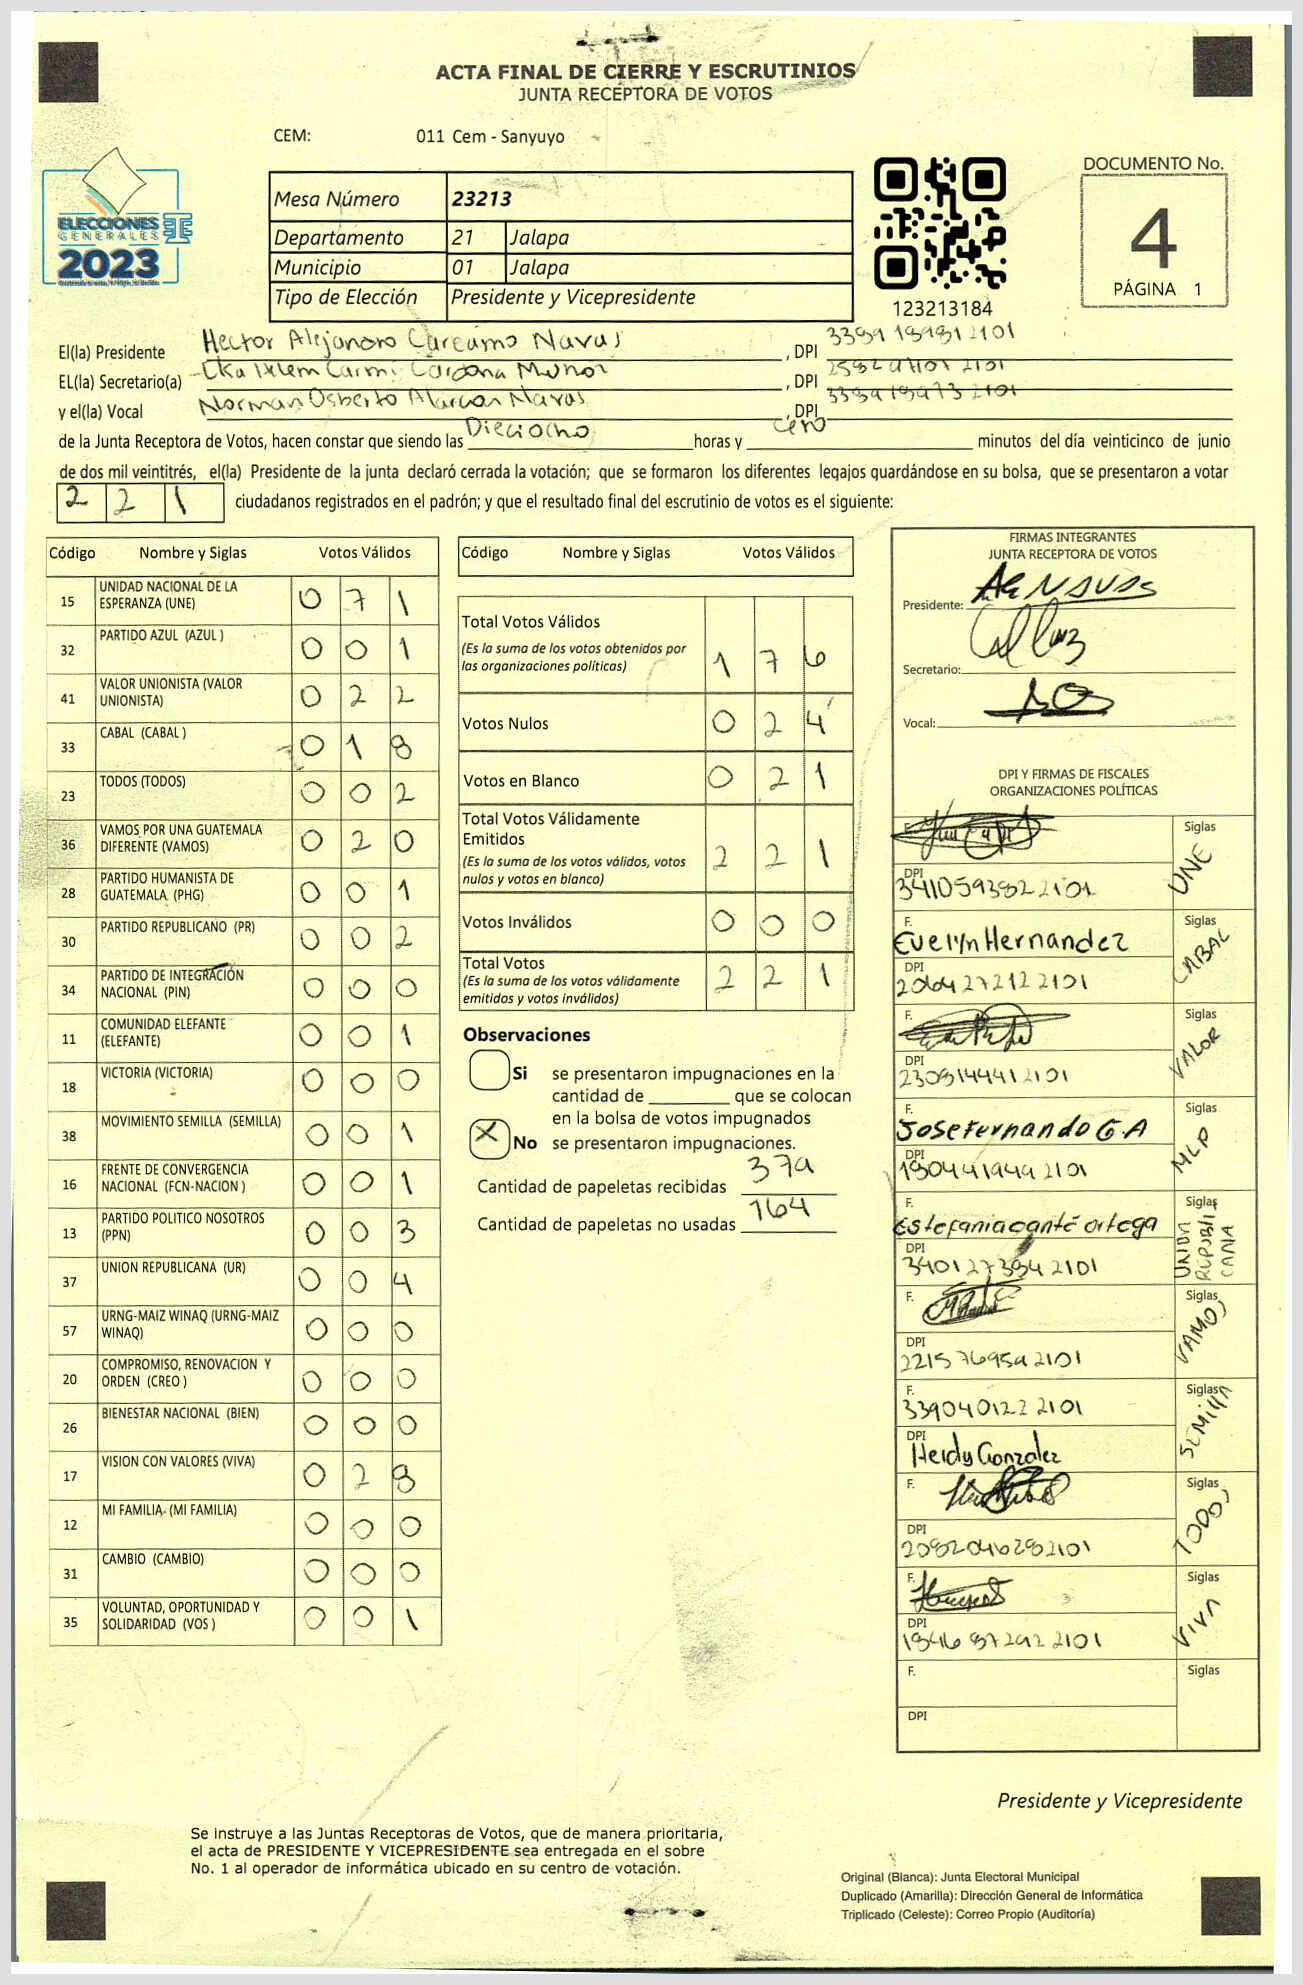 ACTA FINAL DE CIERRE Y ESCRUTINIOS
JUNTA RECEPTORA DE VOTOS
CEM: 011 Cem - Sanyuyo
ELECCIONES
GENERALES
2023
Mesa Número 23213
Departamento 21 Jalapa
Municipio 01 Jalapa
Tipo de Elección Presidente y Vicepresidente
123213184
DOCUMENTO No.
4
PÁGINA 1
El(la) Presidente Hector Alejandro Carcamo Navas, DPI
EL(la) Secretario(a) Carmi Cardona Muñoz, DPI
y el(la) Vocal Norman Osberto Alarcon Navas, DPI
de la Junta Receptora de Votos, hacen constar que siendo las Dieciocho horas y cero minutos del día veinticinco de junio
de dos mil veintitrés, el(la) Presidente de la junta declaró cerrada la votación; que se formaron los diferentes legajos quardándose en su bolsa, que se presentaron a votar
2 2 1 ciudadanos registrados en el padrón; y que el resultado final del escrutinio de votos es el siguiente:
Código Nombre y Siglas Votos Válidos
15 UNIDAD NACIONAL DE LA ESPERANZA (UNE) 0 7 1
32 PARTIDO AZUL (AZUL ) 0 0 1
41 VALOR UNIONISTA (VALOR UNIONISTA) 0 2 2
33 CABAL (CABAL ) 0 1 8
23 TODOS (TODOS) 0 0 2
36 VAMOS POR UNA GUATEMALA DIFERENTE (VAMOS) 0 2 0
28 PARTIDO HUMANISTA DE GUATEMALA (PHG) 0 0 1
30 PARTIDO REPUBLICANO (PR) 0 0 2
34 PARTIDO DE INTEGRACIÓN NACIONAL (PIN) 0 0 0
11 COMUNIDAD ELEFANTE (ELEFANTE) 0 0 1
18 VICTORIA (VICTORIA) 0 0 0
38 MOVIMIENTO SEMILLA (SEMILLA) 0 0 1
16 FRENTE DE CONVERGENCIA NACIONAL (FCN-NACION ) 0 0 1
13 PARTIDO POLITICO NOSOTROS (PPN) 0 0 3
37 UNION REPUBLICANA (UR) 0 0 4
57 URNG-MAIZ WINAQ (URNG-MAIZ WINAQ) 0 0 0
20 COMPROMISO, RENOVACION Y ORDEN (CREO ) 0 0 0
26 BIENESTAR NACIONAL (BIEN) 0 0 0
17 VISION CON VALORES (VIVA) 0 2 8
12 MI FAMILIA (MI FAMILIA) 0 0 0
31 CAMBIO (CAMBIO) 0 0 0
35 VOLUNTAD, OPORTUNIDAD Y SOLIDARIDAD (VOS ) 0 0 1
Código Nombre y Siglas Votos Válidos
Total Votos Válidos
(Es la suma de los votos obtenidos por
las organizaciones políticas) 1 7 6
Votos Nulos 0 2 4
Votos en Blanco 0 2 1
Total Votos Válidamente
Emitidos
(Es la suma de los votos válidos, votos
nulos y votos en blanco) 2 2 1
Votos Inválidos 0 0 0
Total Votos
(Es la suma de los votos válidamente
emitidos y votos inválidos) 2 2 1
Observaciones
Si se presentaron impugnaciones en la
cantidad de ________ que se colocan
en la bolsa de votos impugnados
X No se presentaron impugnaciones.
Cantidad de papeletas recibidas 379
Cantidad de papeletas no usadas 164
FIRMAS INTEGRANTES
JUNTA RECEPTORA DE VOTOS
Presidente:
Secretario:
Vocal:
DPI Y FIRMAS DE FISCALES
ORGANIZACIONES POLÍTICAS
F. Siglas UNE
DPI
F. Evelyn Hernandez Siglas CABAL
DPI
F. Siglas VALOR
DPI
F. Jose Fernando G.A Siglas MLP
DPI
F. Estefania Ortega Siglas UNION REPUBLICANA
DPI
F. Siglas VAMOS
DPI
F. Siglas SEMILLA
DPI Heidy Gonzalez
F. Siglas TODOS
DPI
F. Siglas VIVA
DPI
F. Siglas
DPI
Presidente y Vicepresidente
Se instruye a las Juntas Receptoras de Votos, que de manera prioritaria,
el acta de PRESIDENTE Y VICEPRESIDENTE sea entregada en el sobre
No. 1 al operador de informática ubicado en su centro de votación.
Original (Blanca): Junta Electoral Municipal
Duplicado (Amarilla): Dirección General de Informática
Triplicado (Celeste): Correo Propio (Auditoría)